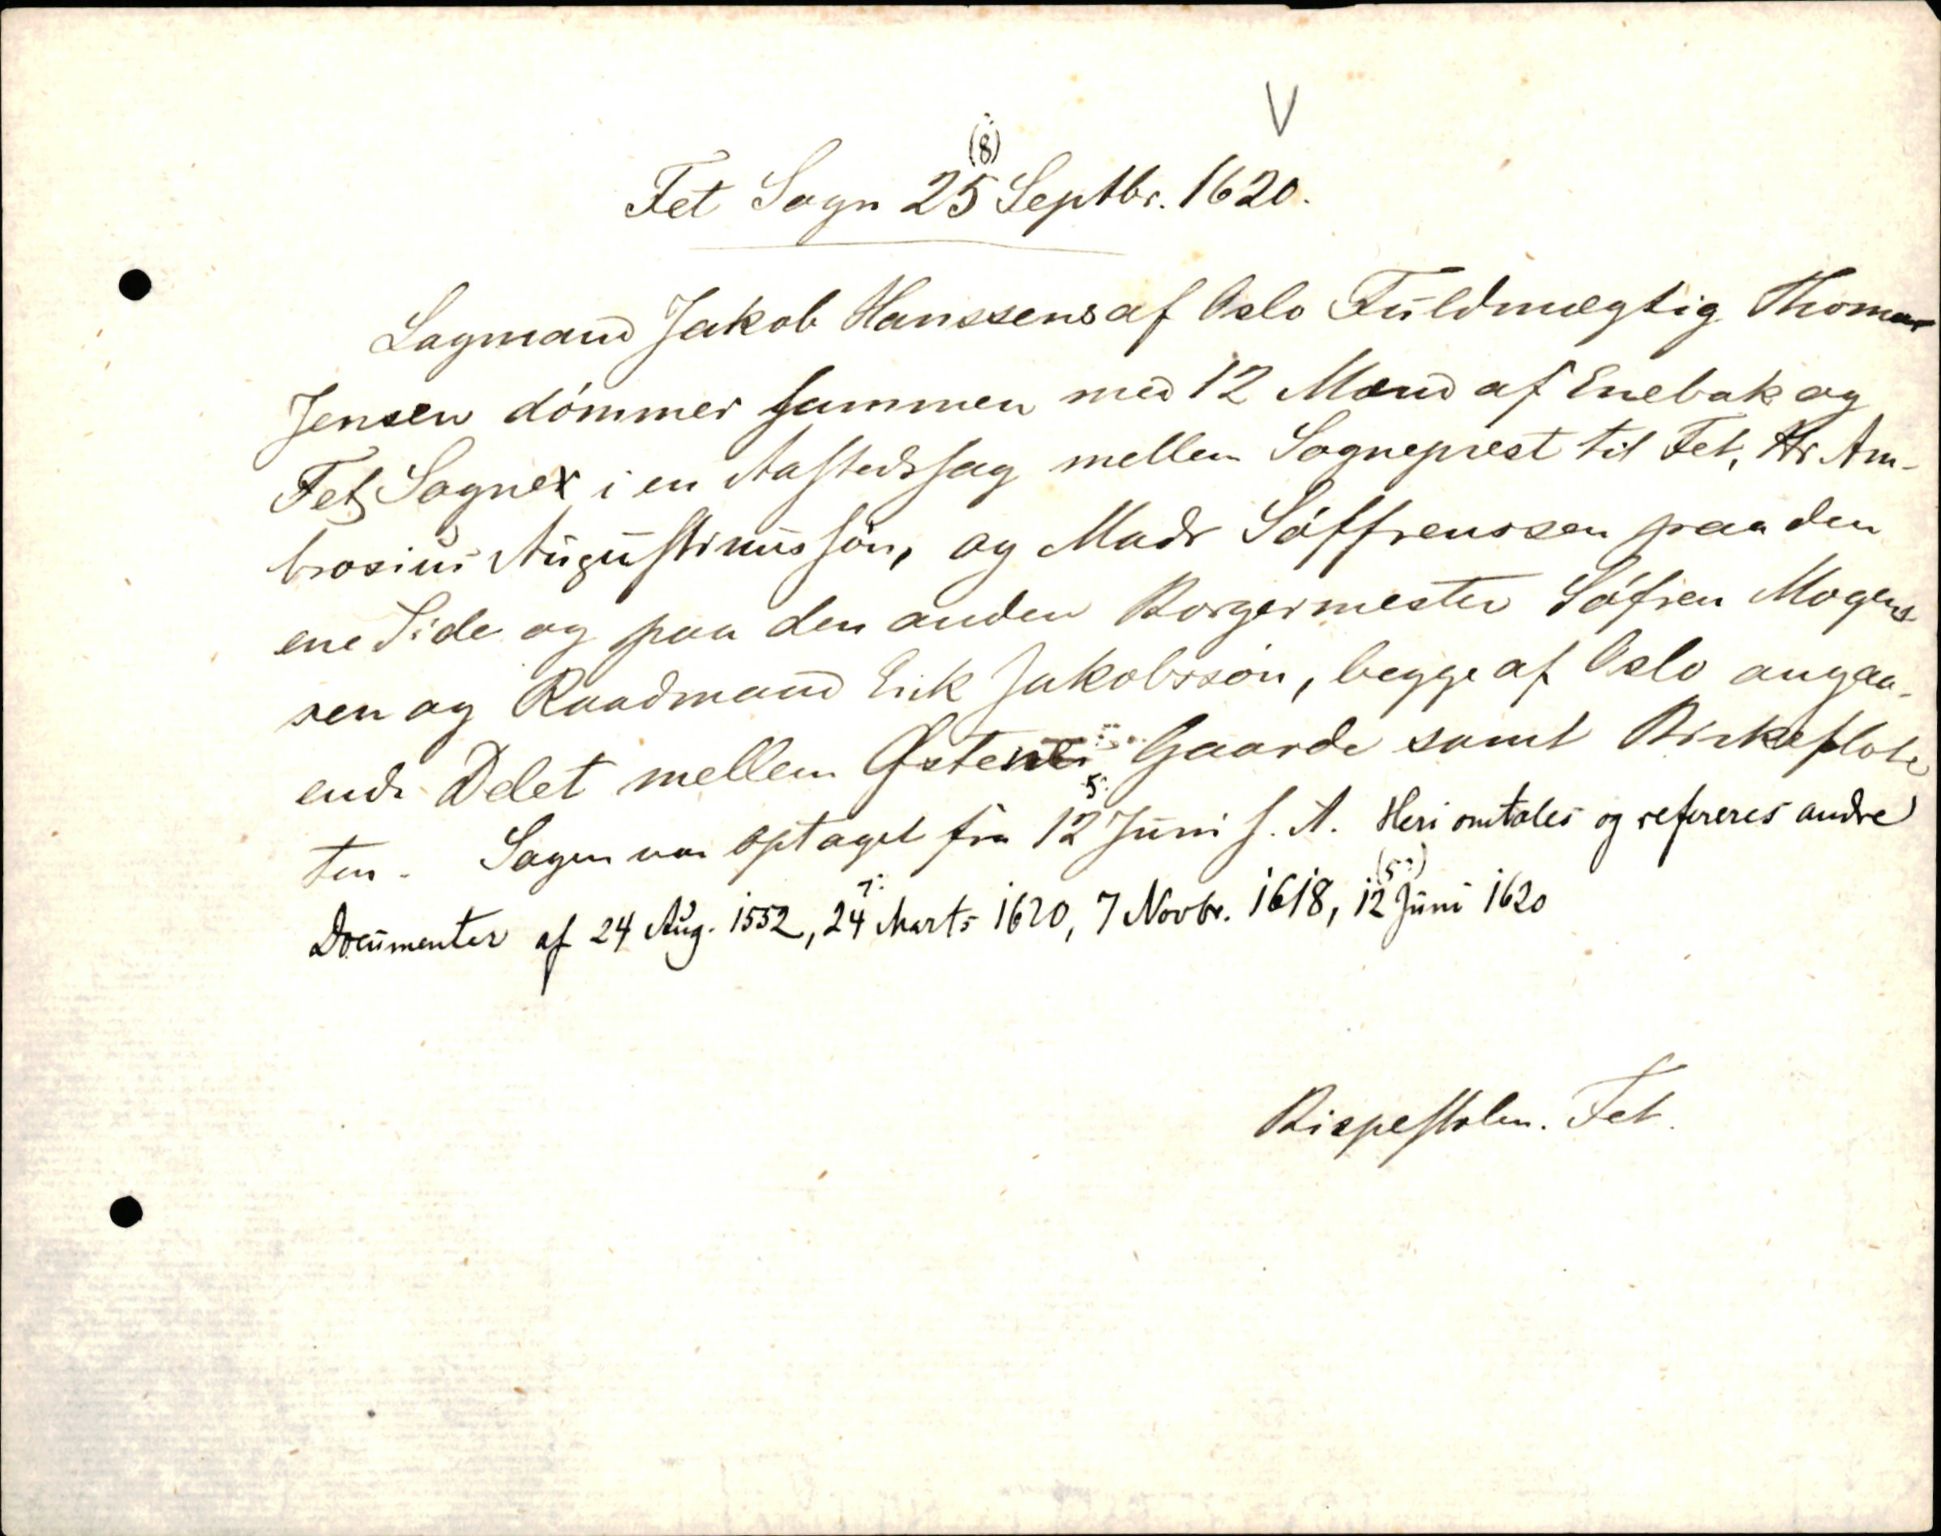 V
(8)
Fet Sogn 25 Septbr. 1620.
Lagmand Jakob Hanssens af Oslo Fuldmægtig Thomas
Jensen dømmer sammen med 12 Mænd af Enebak og
Fet Sogne i en Aastedssag mellem Sogneprest til Fet, Hr Am-
brosius Augustinussøn, og Mads Søffrenssen paa den
ene Side og paa den anden Borgermester Søfren Mogens
sen og Raadmand Erik Jakobssøn, begge af Oslo angaa-
ende Delet mellem Østen Gaarde samt Birkeflote
ten. Sagen var optaget fra 12 Juni s. A. Heri omtales og refereres andre
Documenter af 24 Aug. 1552, 24 Marts 1620, 7 Novbr. 1618, 12 Juni 1620
Bispestolen. Fet.